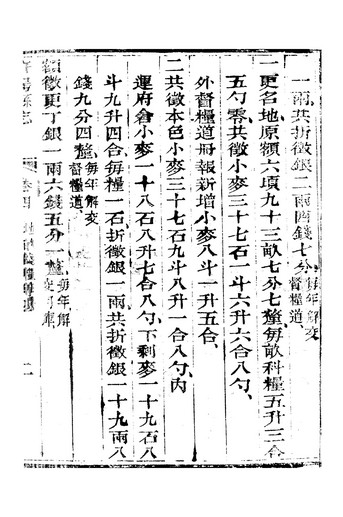 一兩共折徵銀二兩四錢七分每年解交督糧道
一更名地原額六頃九十三畝七分七釐每畝科糧五升三合
五勺零共徵小麥三十七石一斗六升六合八勺
外督糧道冊報新增小麥八斗一升五合
二共徵本色小麥三十七石九斗八升一合八勺內
運府倉小麥一十八石八升七合八勺下剩麥一十九石八
斗九升四合每糧一石折徵銀一兩共折徵銀一十九兩八
錢九分四釐每年解交督糧道
額徵更丁銀一兩六錢五分一釐每年解庫
縣志 卷四